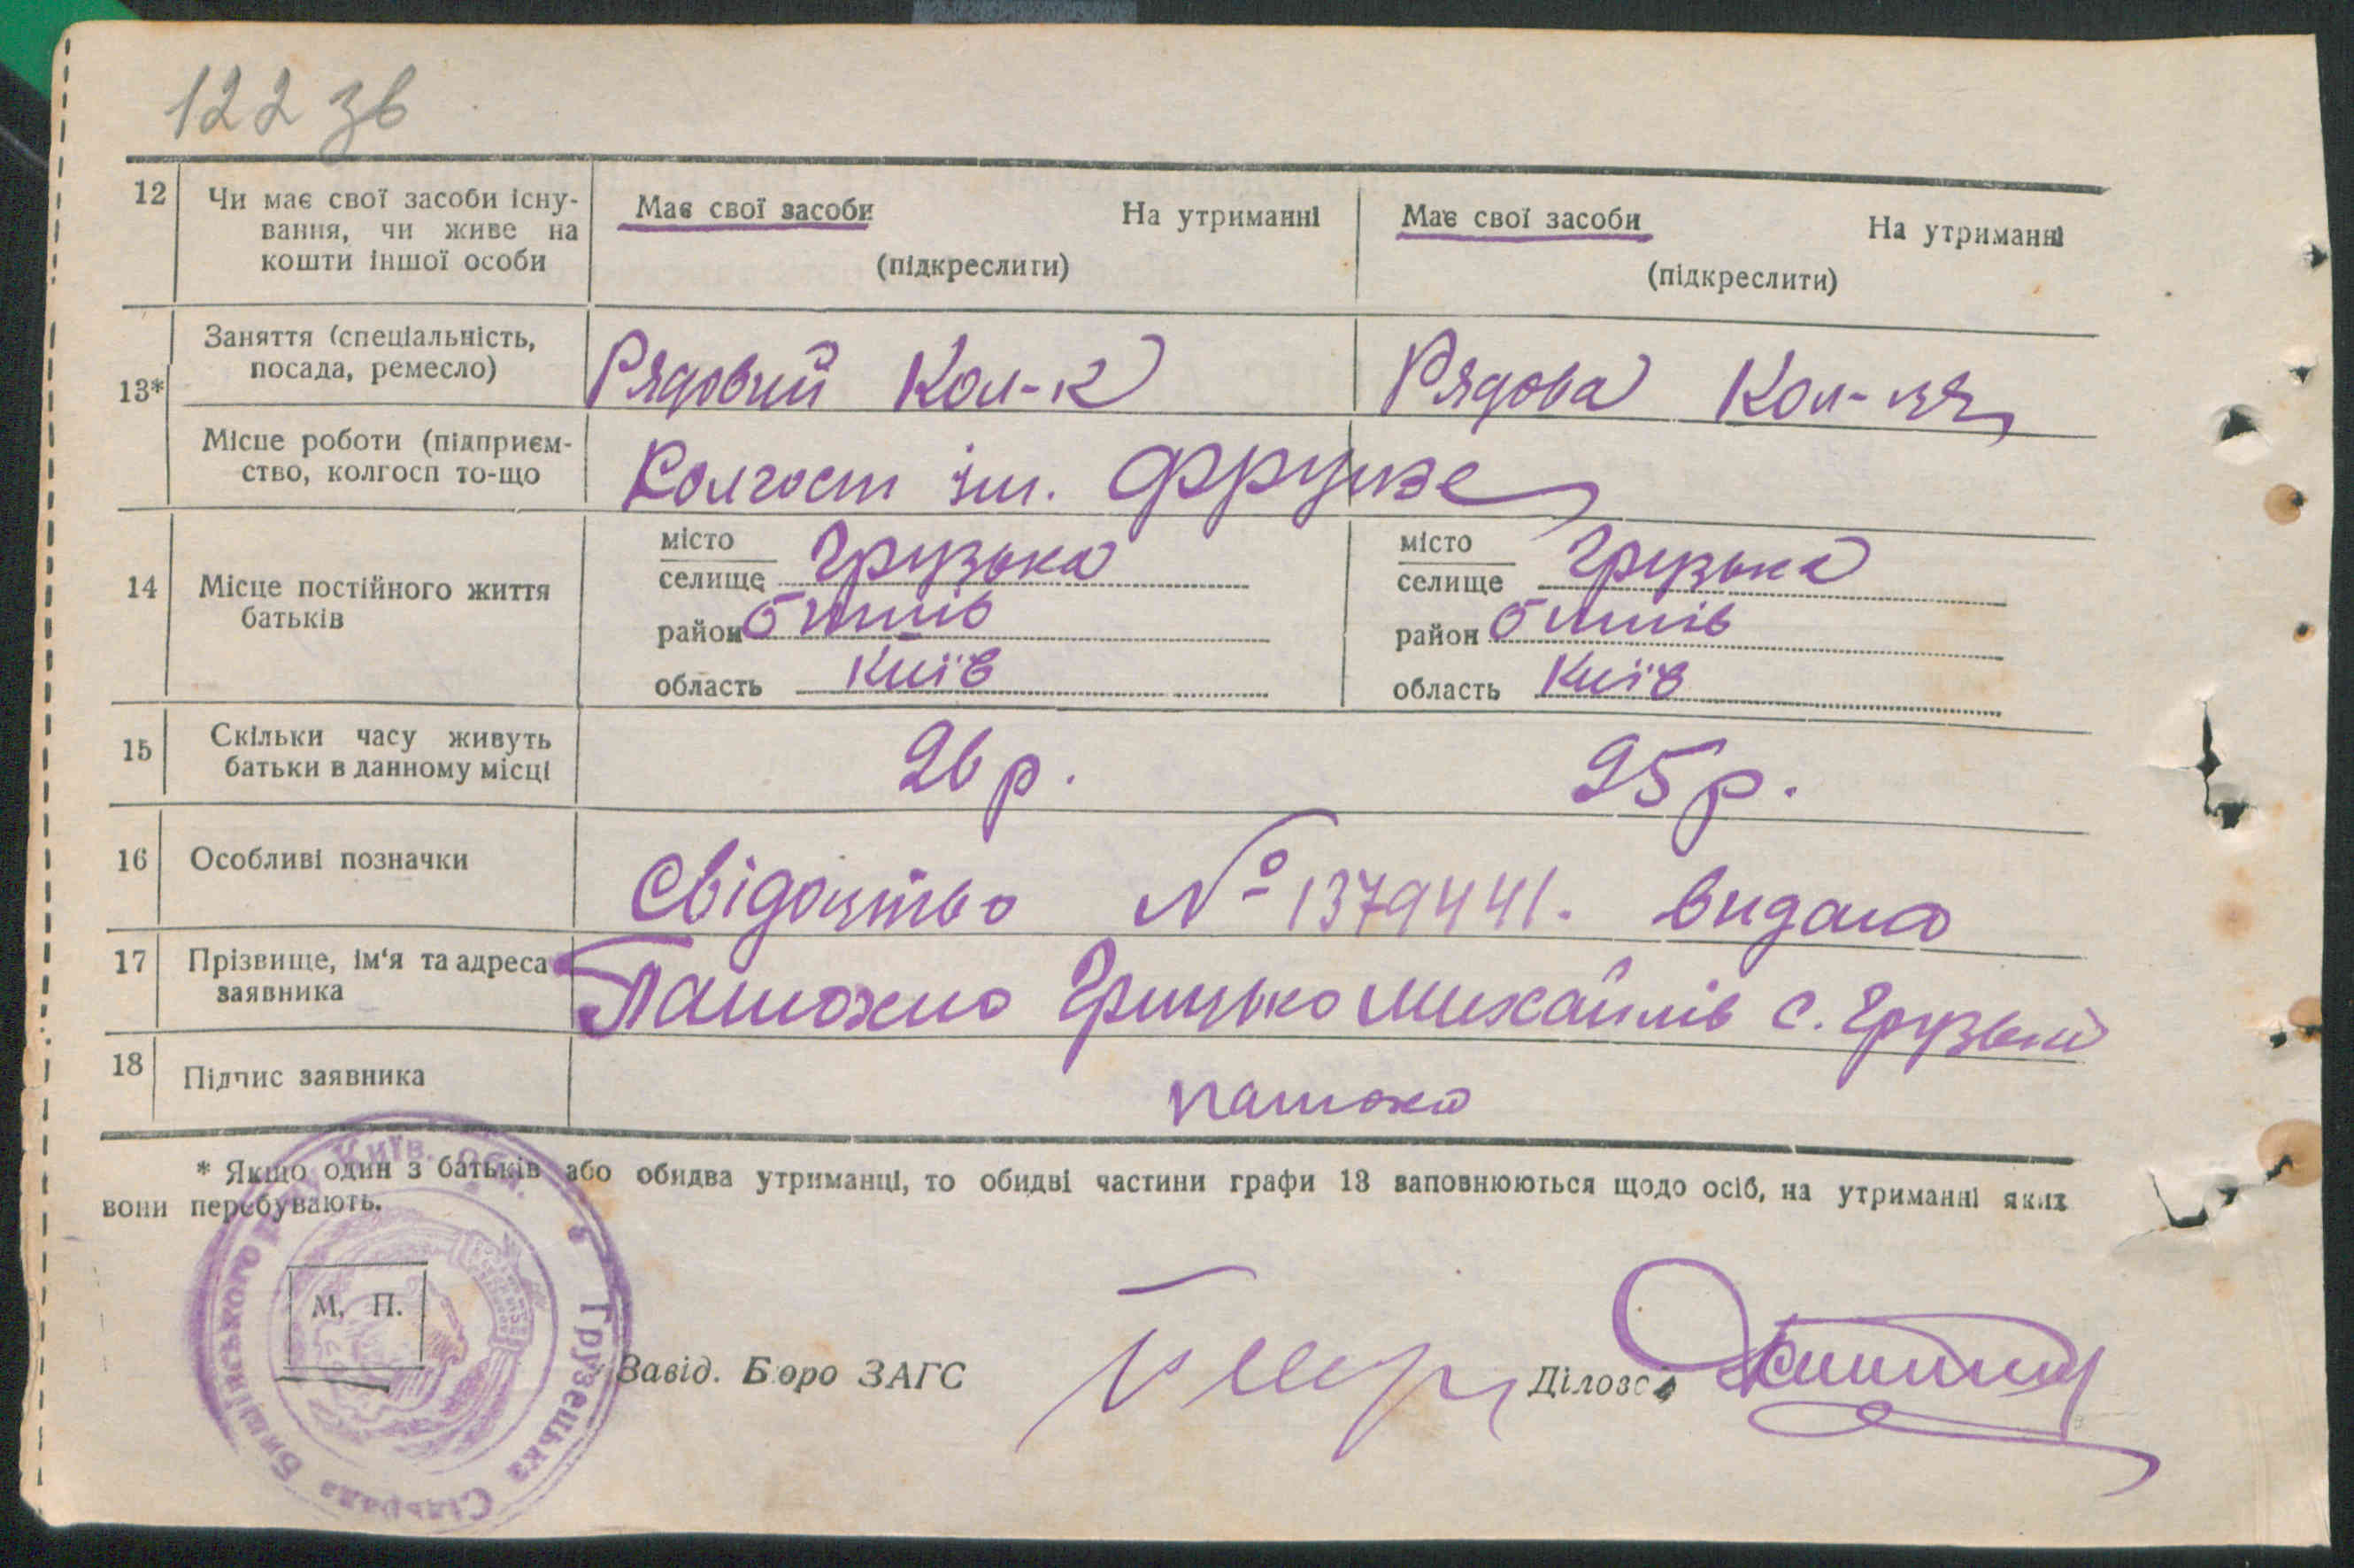 122 зв
12 Чи має свої засоби існу- Має свої засоби На утриманні Має свої засоби На утриманні
вання, чи живе на
кошти іншої особи (підкреслити) (підкреслити)
13* Заняття (спеціальність, Рядовий Кол-к Рядова Кол-ця
посада, ремесло)
Місце роботи (підприєм- Колгосп ім. Фрунзе
ство, колгосп то-що
14 Місце постійного життя
батьків
місто Грузька місто Грузька
селище селище
район Бишів район Бишів
область Київ область Київ
15 Скільки часу живуть 26 р. 25 р.
батьки в данному місці
16 Особливі позначки Свідоцтво № 1379441. видано
17 Прізвище, ім'я та адреса Грицько Михайлів с. Грузька
заявника
18 Підпис заявника
* Якщо один з батьків або обидва утриманці, то обидві частини графи 13 заповнюються щодо осіб, на утриманні яких
вони перебувають.
М. П.
Завід. Бюро ЗАГС Діловод
Грузецька Сільрада Бишівського р. Київ. обл.